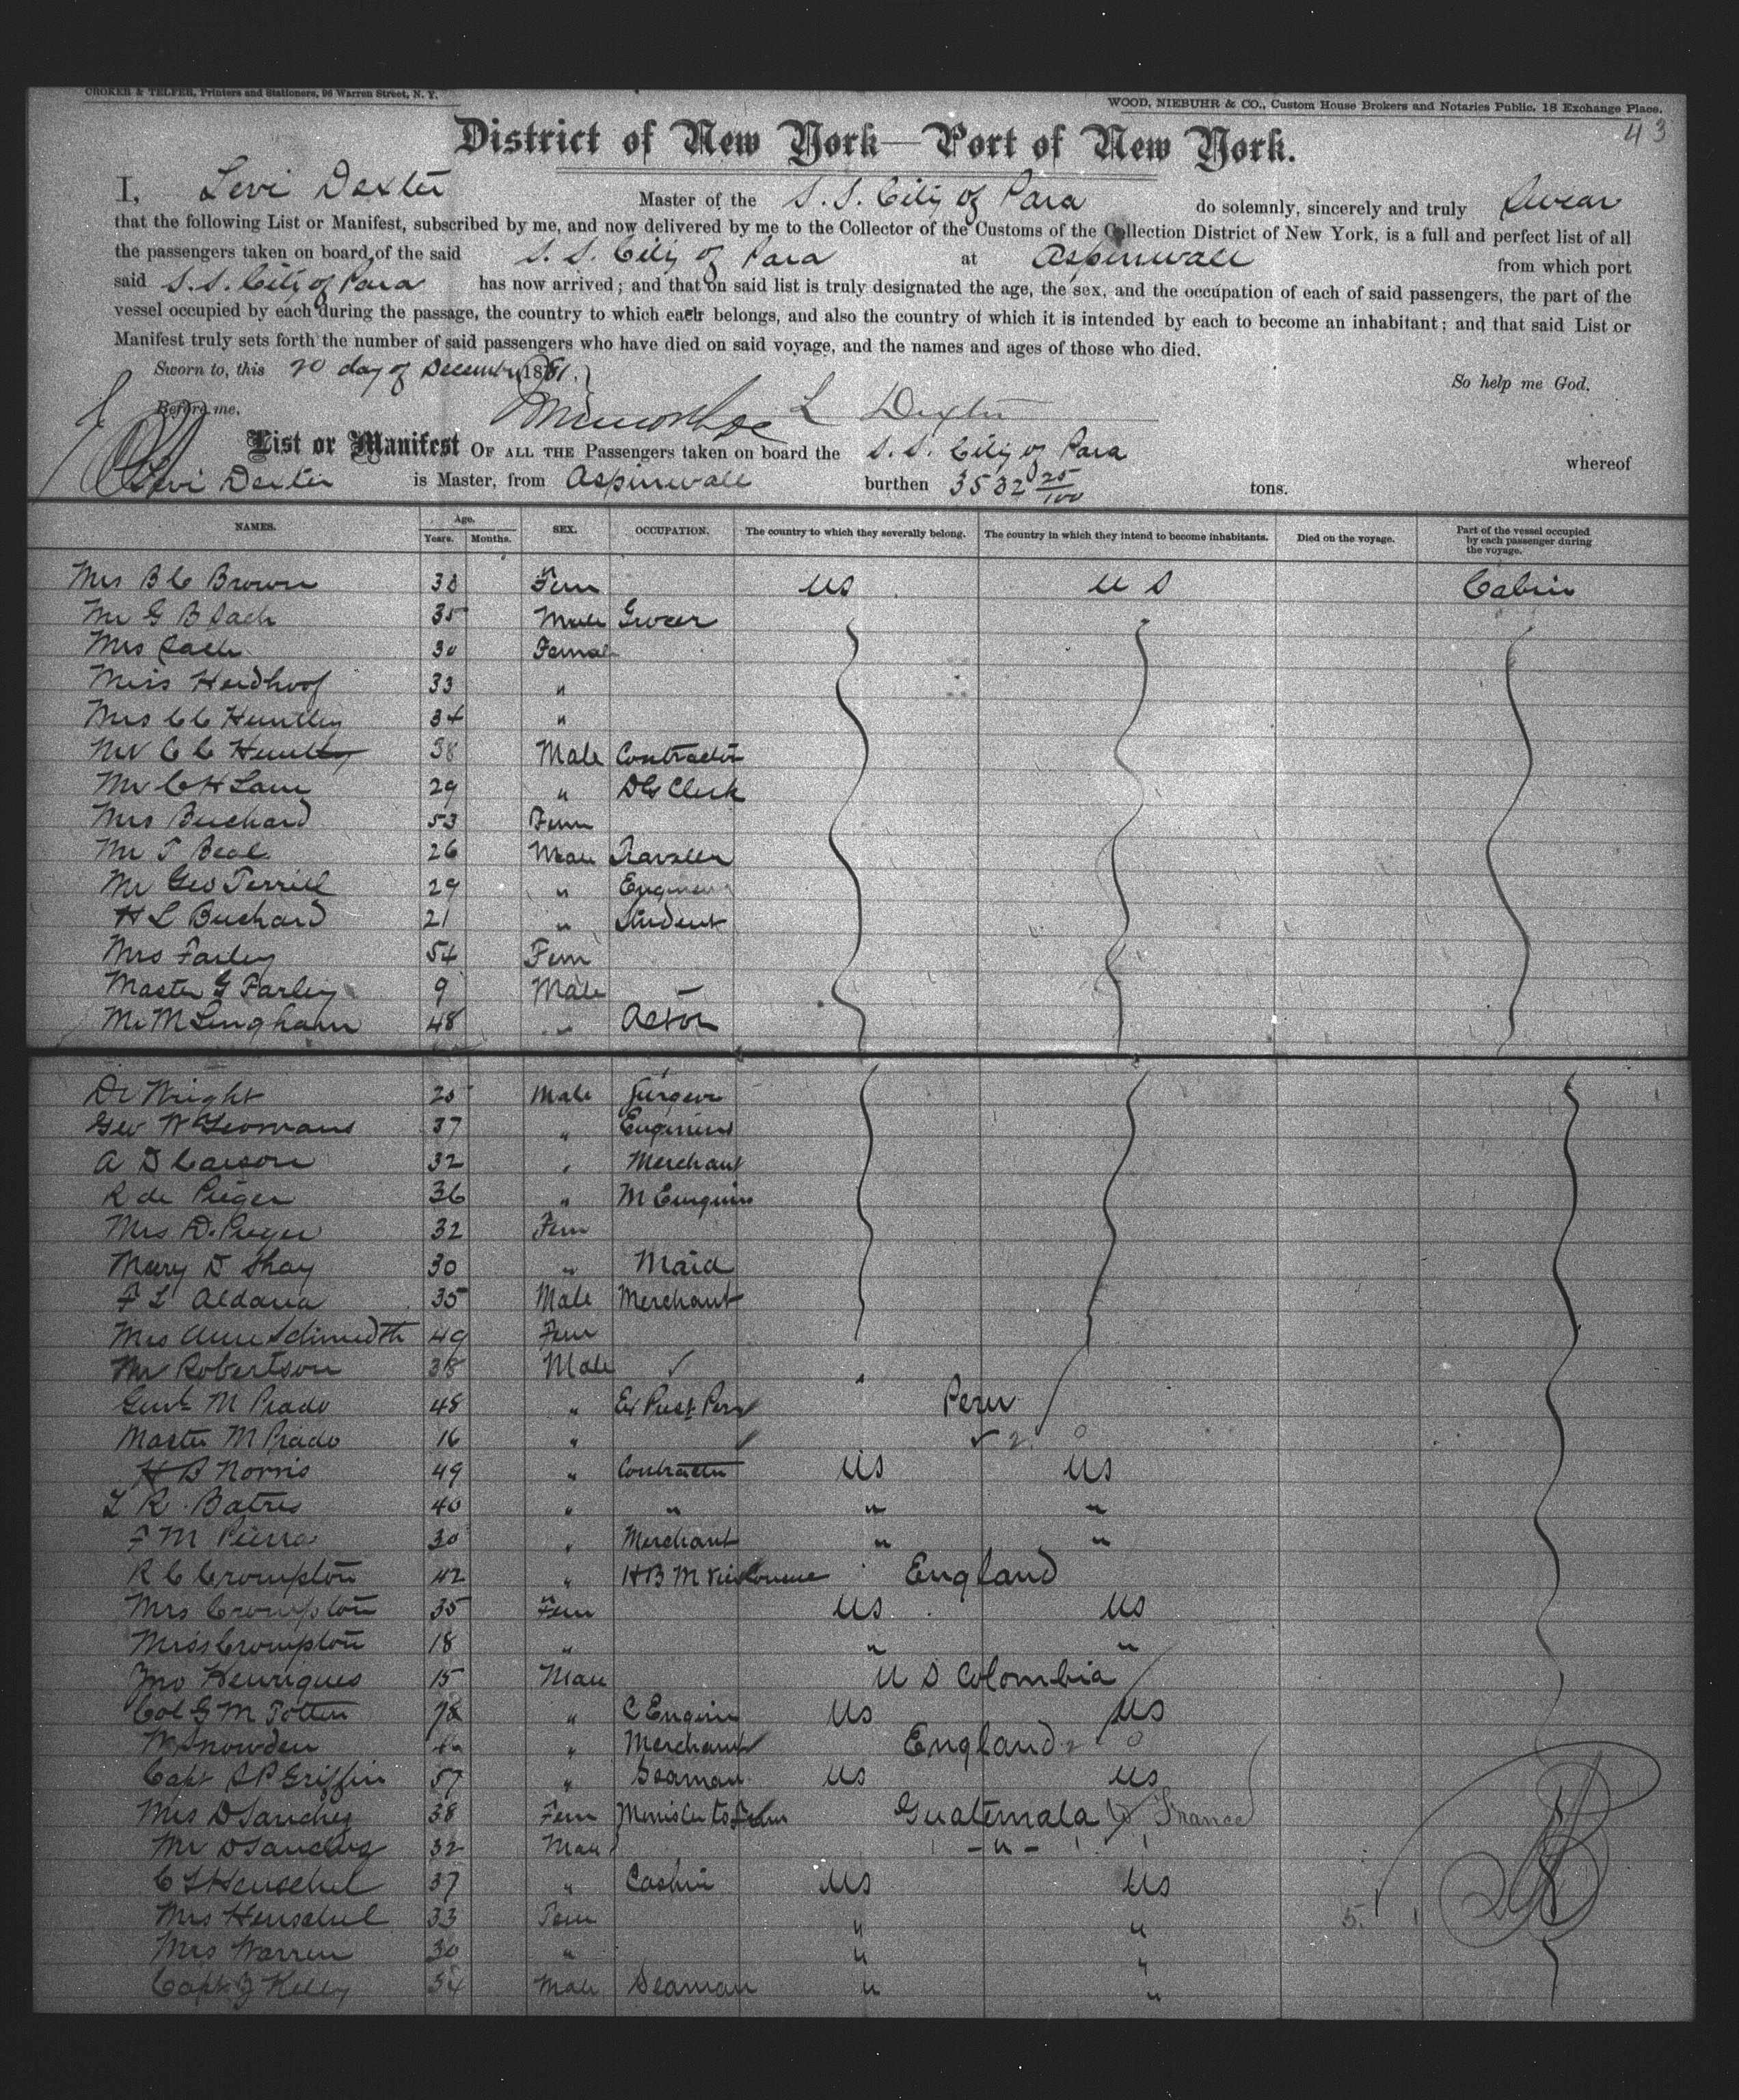 CROKER & TELFER, Printers and Stationers, 96 Warren Street, N. Y.
WOOD, NIEBUHR & CO., Custom House Brokers and Notaries Public, 18 Exchange Place.
43
District of New York—Port of New York.
I, Levi Dexter Master of the S. S. City of Para do solemnly, sincerely and truly Swear
that the following List or Manifest, subscribed by me, and now delivered by me to the Collector of the Customs of the Collection District of New York, is a full and perfect list of all
the passengers taken on board of the said S. S. City of Para at Aspinwall from which port
said S. S. City of Para has now arrived; and that on said list is truly designated the age, the sex, and the occupation of each of said passengers, the part of the
vessel occupied by each during the passage, the country to which each belongs, and also the country of which it is intended by each to become an inhabitant; and that said List or
Manifest truly sets forth the number of said passengers who have died on said voyage, and the names and ages of those who died.
Sworn to, this 20 day of December 1881. So help me God.
Before me, L Dexter
List or Manifest OF ALL THE Passengers taken on board the S. S. City of Para whereof
Levi Dexter is Master, from Aspinwall burthen 3532 25/100 tons.
NAMES. Age. Years. Months. SEX. OCCUPATION. The country to which they severally belong. The country in which they intend to become inhabitants. Died on the voyage. Part of the vessel occupied by each passenger during the voyage.
Mrs B C Brown 38 Fem US US Cabin
Mr G B 35 Male Grocer
Mrs 30 Female
Miss 33 "
Mrs C C Huntley 34 "
Mr C C Huntley 38 Male Contractor
Mr C H Lane 29 " DG Clerk
Mrs Buchard 53 Fem
Mr T Beal 26 Male
Mr Geo Terrill 29 " Engineer
H L Buchard 21 " Student
Mrs Farley 54 Fem
Master G Farley 9 Male
Mr M Lingham 48 " Actor
Dr Wright 25 Male Surgeon
Geo W Yeomans 37 " Engineer
A D Carson 32 " Merchant
R de Preger 36 " M Engineer
Mrs D. Preger 32 Fem
Mary D Shay 30 " Maid
F L Aldana 35 Male Merchant
Mrs Anne Schmidth 49 Fem
Mr Robertson 38 Male
Genl M Prado 48 " Ex Prest Peru Peru
Master M Prado 16 "
H B Norris 49 " Contractor US US
L R Batres 40 " " " "
F M Pierra 30 " Merchant " "
R C Crompton 42 " H B M England
Mrs Crompton 35 Fem US US
Miss Crompton 18 " " "
Jno Henriques 15 Male U S Colombia
Col G M Totten 78 " C Engineer US US
W Snowden " Merchant England
Capt S P Griffin 57 " Seaman US US
Mrs D Sanchez 38 Fem Minister to Guatemala France
Mr D Sanchez 32 Male - " -
C L Henschel 37 " Cashier US US
Mrs Henschel 33 Fem " "
Mrs Warren 30 " " "
Capt J Kelly 54 Male Seaman " "